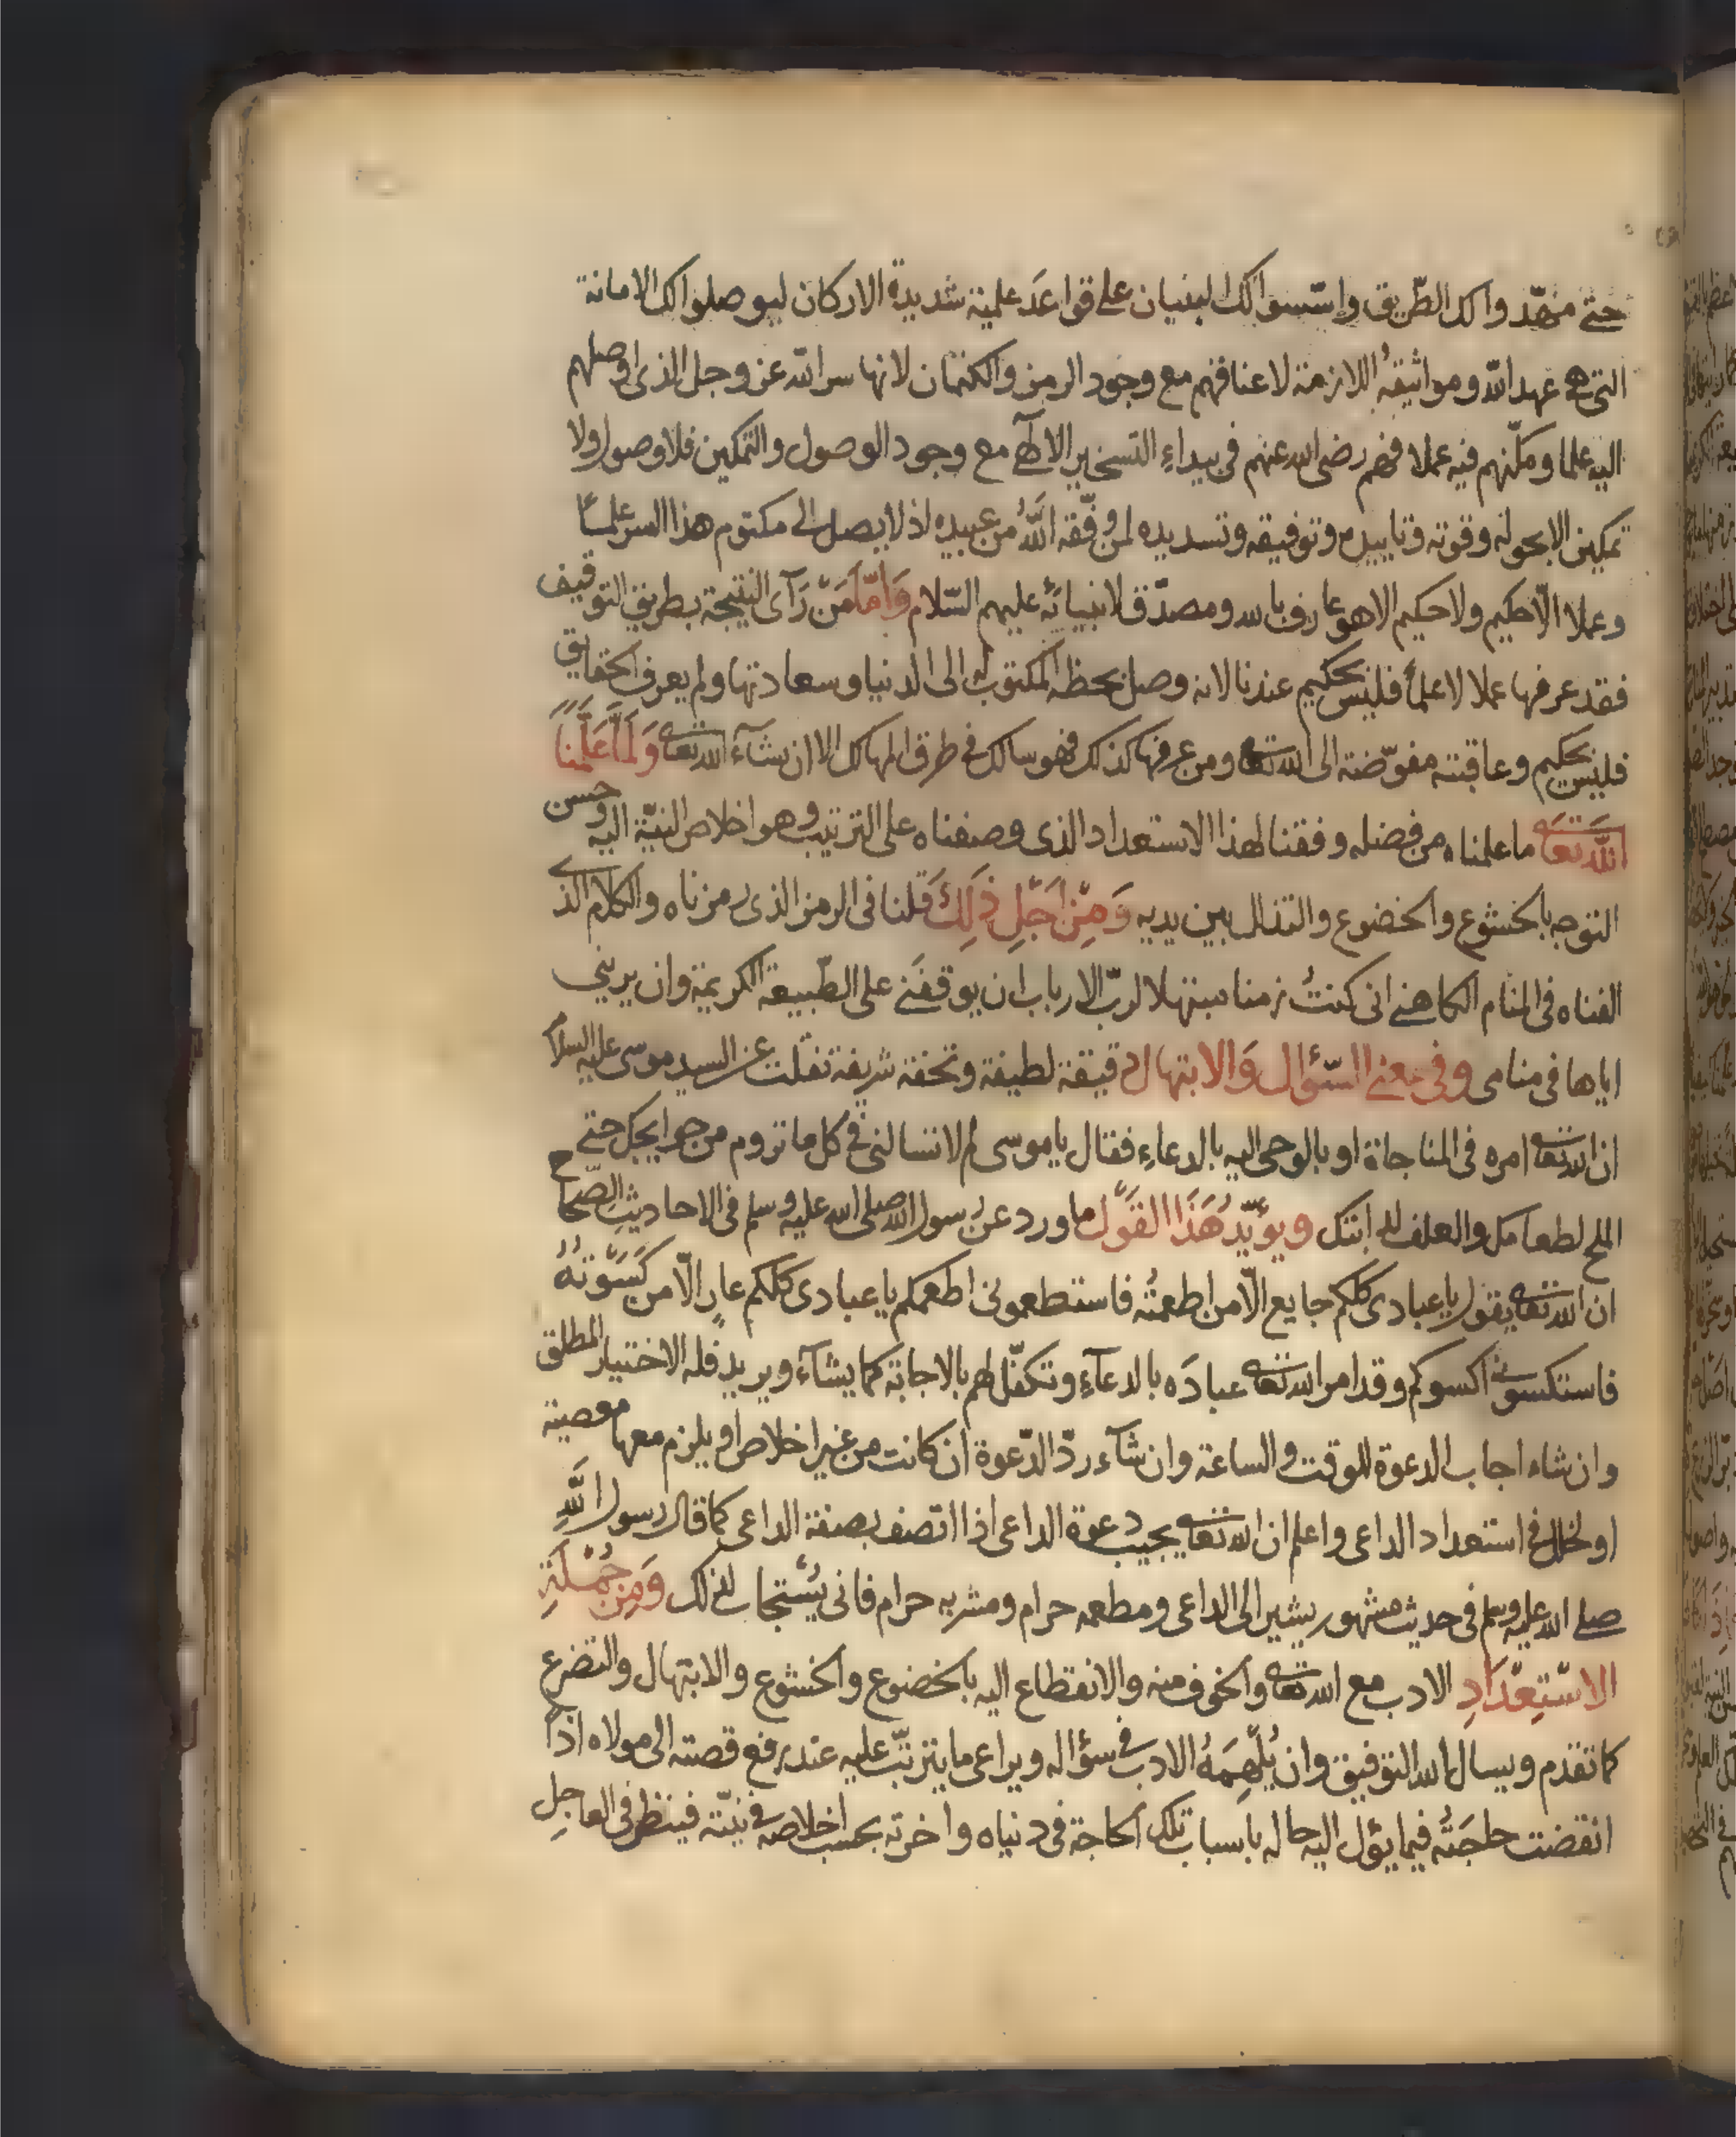 حتى مهّدوا لك الطّريق واسّسوا لك البنيان على قواعد علمية شديدة الاركان ليوصلوا لك الامانة
التى هى عهد الله ومواثيقهُ اللازمة لاعناقهم مع وجود الرمز والكتمان لانها سر الله عز وجل الذى اوصلهم
اليه علما ومكّنهم فيه عملا فهم رضى الله عنهم فى بيداء التسخير الالٓهى مع وجود الوصول والتمكين فلا وصول ولا
تمكين الا بحوله وقوته وتاييده وتوفيقه وتسديده لمن وفّقه اللهُ من عبيده اذ لا يصل الى مكتوم هذا السر علمًا
وعملا الّا حكيم ولا حكيم الا هو عارف بالله ومصدّق لانبيائه عليهم السّلام وَامّا مَنْ رَآى النتيجة بطريق التوقيف
فقد عرفها عملا لا علماً فليس بحكيم عندنا لانه وصل بحظه المكتوب له الى الدنيا وسعادتها ولم يعرف الحقايق
فليس بحكيم وعاقبته مفوّضة الى الله تعالى ومن عرفها كذلك فهو سالك فى طرق المهالك الا ان شآء الله تعالى وَلَمَّا عَلَّمنَا
اللهُ تَعَالى ما علمناه من فضله وفقنا لهذا الاستعداد الذى وصفناه على الترتيب وهو اخلاص النيّة اليه وحسن
التوجه بالخشوع والخضوع والتذلل بين يديه وَمِنْ اَجْلِ ذَلِكَ قلنا فى الرمز الذى رمزناه والكلام الذى
الفناه فى المنام الكاهنى انى كنتُ زمنا مبتهلا لربّ الارباب ان يوقفَنى على الطّبيعة الكريمة وان يرينى
اياها فى منامى وفى معنى السّؤال وَالابتهال دقيقة لطيفة وتحفة شريفة نقلت عن السيد موسى عليه السلام
ان الله تعالى امره فى المناجاة او بالوحى اليه بالدعاء فقال يا موسى لم لا تسالنى فى كل ما تروم من حوايجك حتى
الملح لطعامك والعلف لدابتك ويؤيّدُ هَذَا القَوْل ما ورد عن رسول الله صلى الله عليه وسلم فى الاحاديث الصّحاح
ان الله تعالى يقول يا عبادى كلكم جايع الّا من اطعمتُه فاستطعمونى اطعمكم يا عبادى كلكم عارٍ الّا من كَسَوْتهُ
فاستكسونى اكسوكم وقد امر الله تعالى عبادَه بالدعآءِ وتكفّل لهم بالاجابة كما يشآء ويريد فله الاختيار المطلق
وان شاء اجاب الدعوة للوقت والساعة وان شآء ردّ الدّعوة ان كانت من غير اخلاص او يلزم معها معصية
او لخلل فى استعداد الداعى واعلم ان الله تعالى يجيب دعوة الداعى اذا اتصف بصفة الداعى كما قال رسول اللَّهِ
صلى الله عليه وسلم فى حديث مشهور يشير الى الداعى ومطعمه حرام ومشربه حرام فانى يُسْتجاب لذلك وَمِنْ جُمْلَةِ
الاسْتِعْدَادِ الادب مع الله تعالى والخوف منه والانقطاع اليه بالخضوع والخشوع والابتهال والتضرع
كما تقدم ويسال الله التوفيق وان يُلْهِمَهُ الادب فى سؤاله ويراعى ما يترتّب عليه عند رفع قصته الى مولاه اذا
انقضت حاجَتُه فيما يؤل اليه حاله باسباب تلك الحاجة فى دنياه واخرته بحسب اخلاصه فى نيّته فينظر فى العاجِل